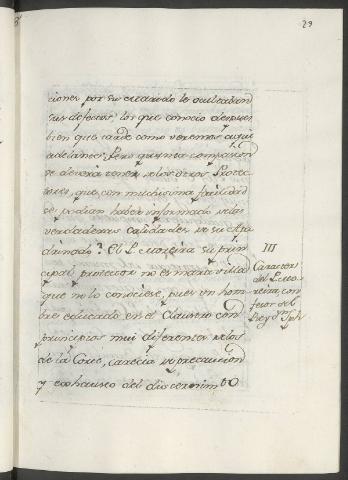 29
ciones por su estando le ocultaban
sus defectos, los que conocio despues
bien que tarde como veremos aqui
adelante. Pero quanta compasion
se devera tener a los otros Protec
tores, que con muchisima facilidad
se podian haber informado de las
verdaderas calidades de su Ahi
drinado? El P. Moreira su prin
cipal protector no es maravilla
que no lo conociese, pues un hom
bre educado en el Claustro con
principios mui diferentes de los
de la Corte, carecia de precaucion
y exhausto del discernim.to
III
Caracter
del P. Mo
reira, con
fesor del
Rey Dn
Jph